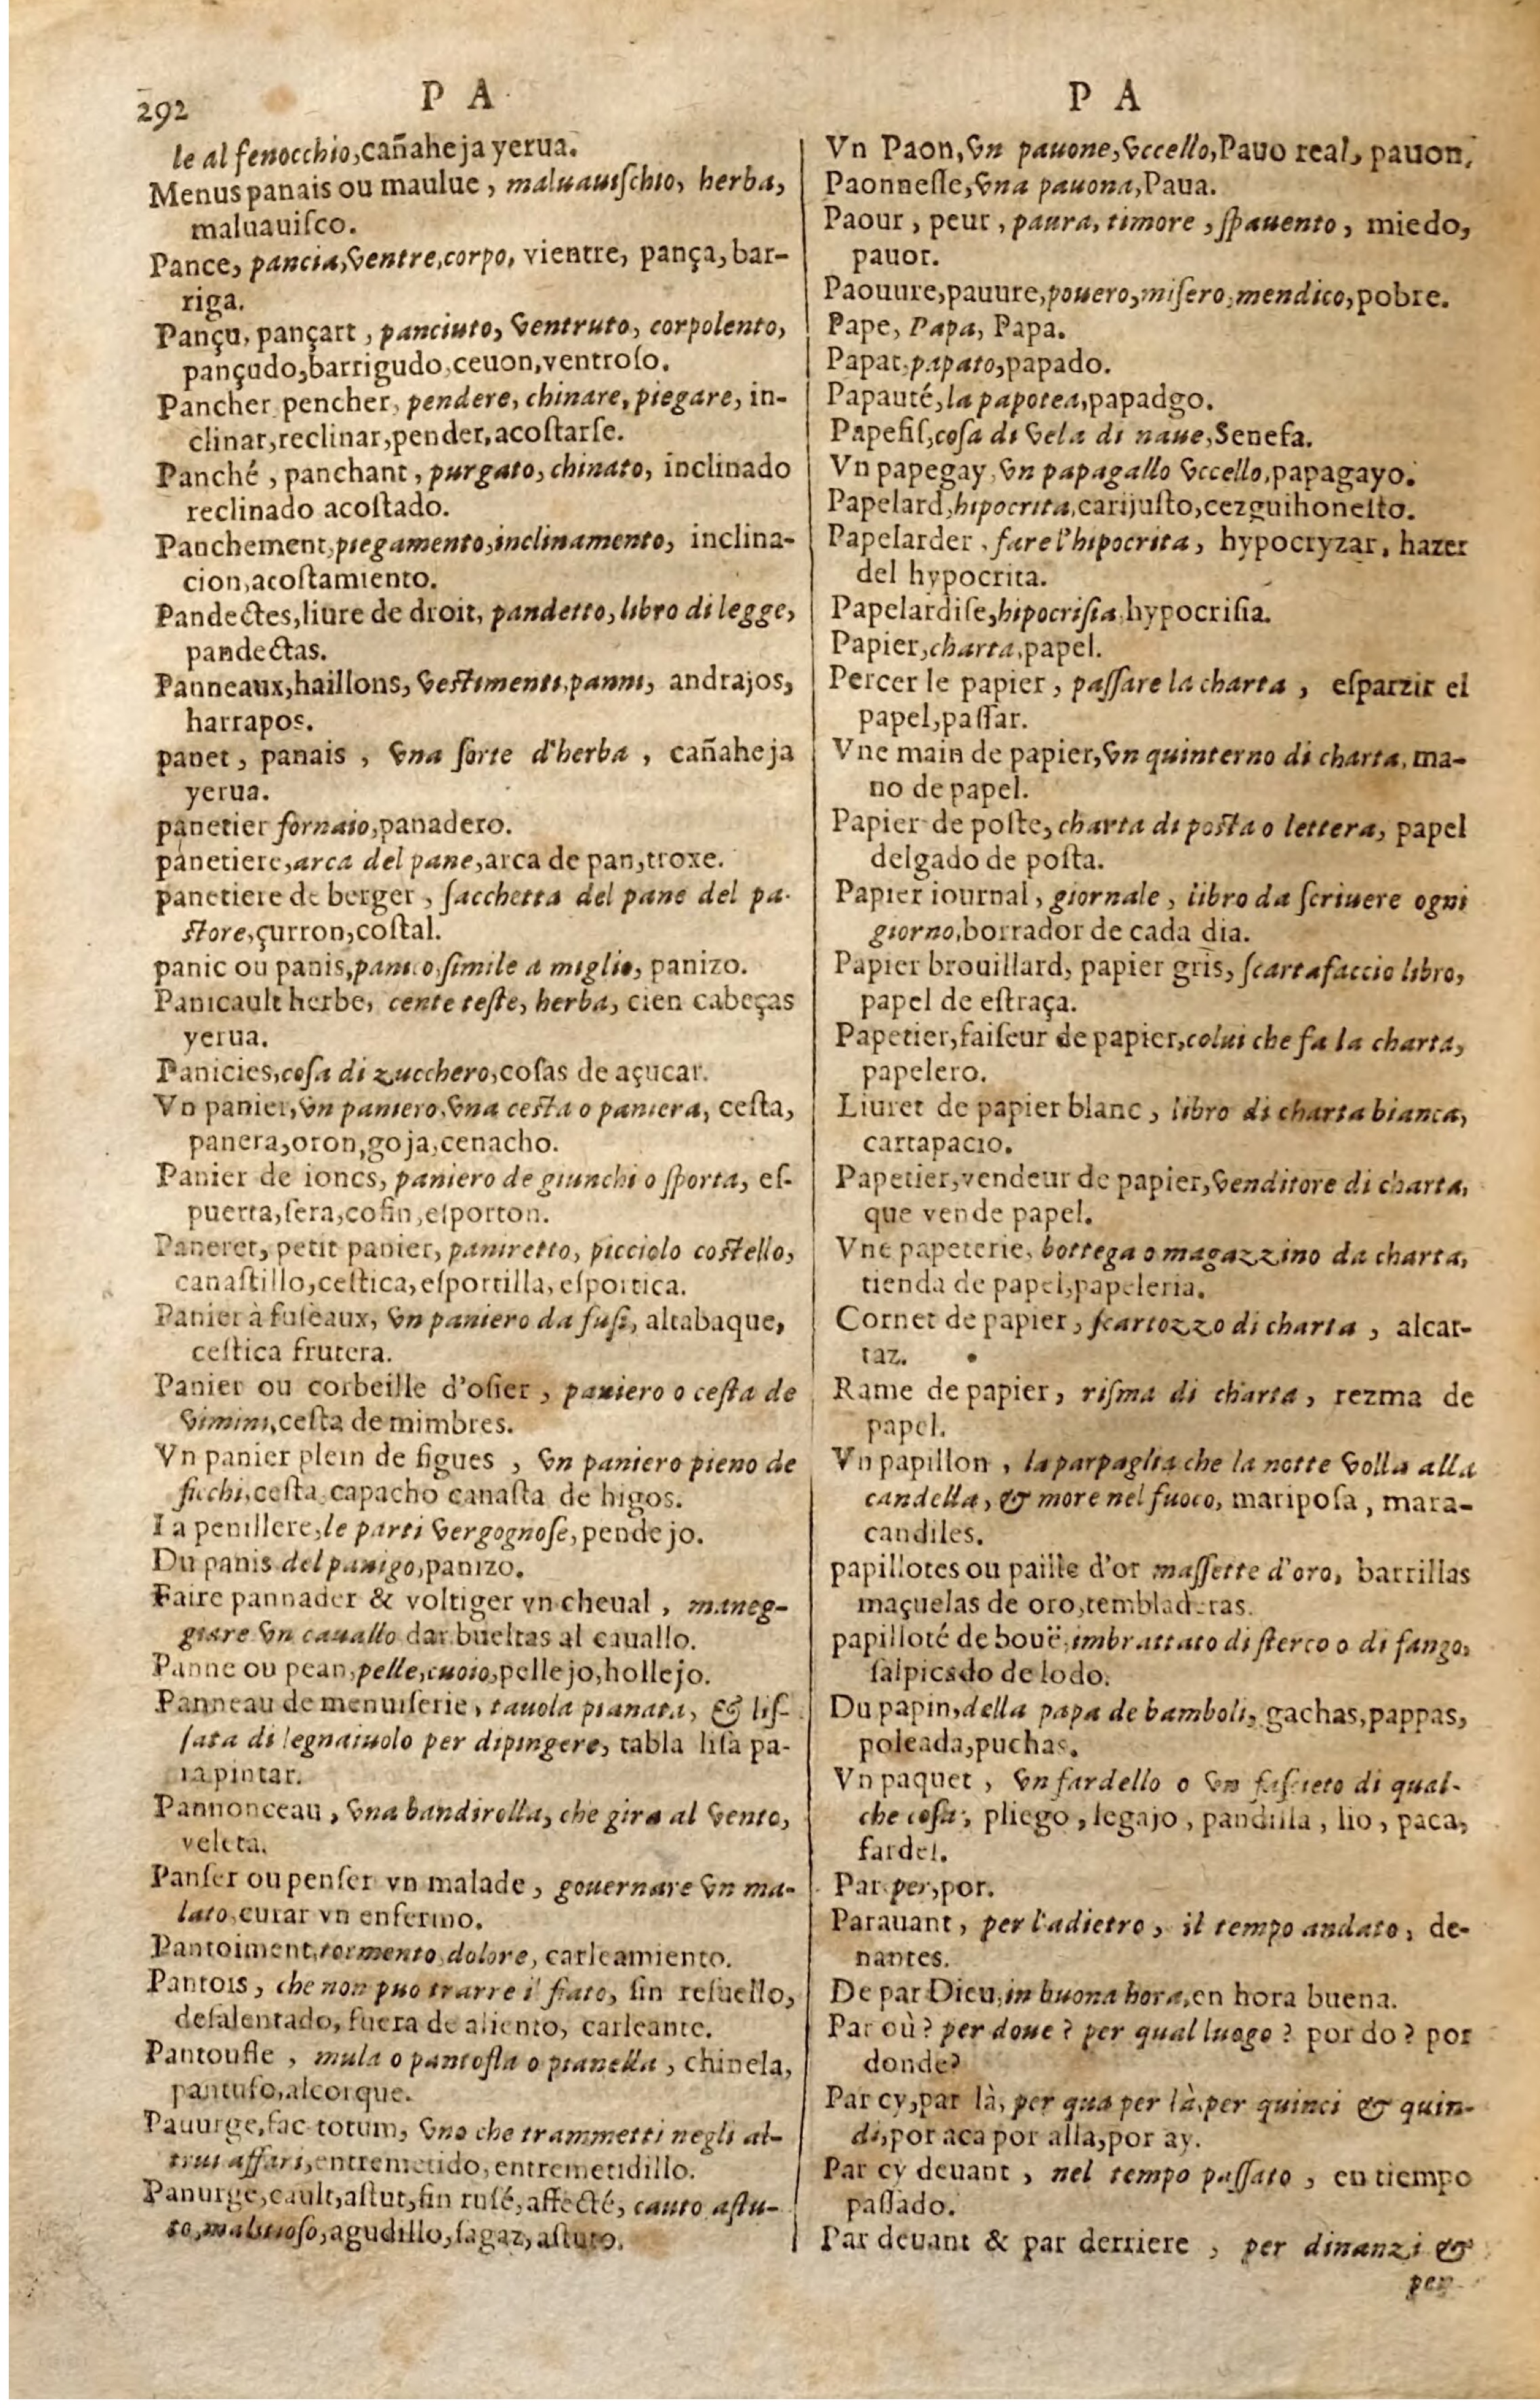 292
P A
P A
le al fenocchio,cañaheja yerua.
Menus panais ou maulue , maluauiſchio, herba,
maluauiſco.
Pance, pancia,ventre,corpo, vientre, pança, bar-
riga.
Pançu, pançart , panciuto, ventruto, corpolento,
pançudo,barrigudo,ceuon,ventroſo.
Pancher pencher, pendere, chinare, piegare, in-
clinar,reclinar,pender,acoſtarſe.
Panché , panchant , purgato, chinato, inclinado
reclinado acoſtado.
Panchement,piegamento,inclinamento, inclina-
cion,acoſtamiento.
Pandectes,liure de droit, pandetto, libro di legge,
pandectas.
Panneaux,haillons, veſtimenti,panni, andrajos,
harrapos.
panet , panais , vna ſorte d'herba , cañaheja
yerua.
panetier fornaio,panadero.
panetiere,arca del pane,arca de pan,troxe.
panetiere de berger , ſacchetta del pane del pa-
ſtore,çurron,coſtal.
panic ou panis,panico,ſimile a miglio, panizo.
Panicault herbe, cente teſte, herba, cien cabeças
yerua.
Panicies,coſa di zucchero,coſas de açucar.
Vn panier,vn paniero,vna ceſta o paniera, ceſta,
panera,oron,goja,cenacho.
Panier de ioncs, paniero de giunchi o ſporta, eſ-
puerta,ſera,cofin,eſporton.
Paneret, petit panier, paniretto, picciolo coſtello,
canaſtillo,ceſtica,eſportilla,eſportica.
Panier à fuſeaux, vn paniero da fuſi, altabaque,
ceſtica frutera.
Panier ou corbeille d'oſier , paniero o ceſta de
vimini,ceſta de mimbres.
Vn panier plein de figues , vn paniero pieno de
ficchi,ceſta capacho canaſta de higos.
La penillere,le parti vergognoſe,pendejo.
Du panis del panigo,panizo.
Faire pannader & voltiger vn cheual , maneg-
giare vn cauallo dar bueltas al cauallo.
Panne ou pean,pelle,cuoio,pellejo,hollejo.
Panneau de menuiſerie, tauola pianata, & liſ-
ſata di legnaiuolo per dipingere, tabla liſa pa-
ra pintar.
Pannonceau , vna bandirolla, che gira al vento,
veleta.
Panſer ou penſer vn malade , gouernare vn ma-
lato,curar vn enfermo.
Pantoiment,tormento,dolore, carleamiento.
Pantois , che non puo trarre il fiato, ſin reſuello,
deſalentado, fuera de aliento, carleante.
Pantoufle , mula o pantofla o pianella , chinela,
pantufo,alcorque.
Pauurge,fac totum, vno che trammetti negli al-
trui affari,entremetido,entremetidillo.
Panurge,cault,aſtut,fin ruſé,affecté, cauto aſtu-
to,malitioſo,agudillo,ſagaz,aſtuto.
Vn Paon,vn pauone,vccello,Pauo real, pauon.
Paonneſſe,vna pauona,Paua.
Paour , peur , paura, timore , ſpauento , miedo,
pauor.
Paouure,pauure,pouero,miſero,mendico,pobre.
Pape, Papa, Papa.
Papat,papato,papado.
Papauté,la papotea,papadgo.
Papefiſ,coſa di vela di naue,Senefa.
Vn papegay,vn papagallo vccello,papagayo.
Papelard,hipocrita,carijuſto,cezguihoneſto.
Papelarder , fare l'hipocrita, hypocryzar, hazer
del hypocrita.
Papelardiſe,hipocriſia,hypocriſia.
Papier,charta,papel.
Percer le papier , paſſare la charta , eſparzir el
papel,paſſar.
Vne main de papier,vn quinterno di charta, ma-
no de papel.
Papier de poſte, charta di poſta o lettera, papel
delgado de poſta.
Papier iournal , giornale , libro da ſcriuere ogni
giorno,borrador de cada dia.
Papier brouillard, papier gris, ſcartafaccio libro,
papel de eſtraça.
Papetier,faiſeur de papier,colui che fa la charta,
papelero.
Liuret de papier blanc , libro di charta bianca,
cartapacio.
Papetier,vendeur de papier,venditore di charta,
que vende papel.
Vne papeterie, bottega o magazzino da charta,
tienda de papel,papeleria.
Cornet de papier , ſcartozzo di charta , alcar-
taz.
Rame de papier, riſma di charta , rezma de
papel.
Vn papillon , la parpaglia che la notte volla alla
candella, & more nel fuoco, mariposa , mara-
candiles.
papillotes ou paille d'or maſſette d'oro, barrillas
maçuelas de oro,tembladeras.
papilloté de bouë,imbrattato di ſterco o di fango,
ſalpicado de lodo.
Du papin,della papa de bamboli, gachas,pappas,
poleada,puchas.
Vn paquet , vn fardello o vn faſcieto di qual-
che coſa, pliego , legajo , pandilla , lio , paca,
fardel.
Par per,por.
Parauant , per l'adietro , il tempo andato , de-
nantes.
De par Dieu,in buona hora,en hora buena.
Par où ? per doue ? per qual luogo ? por do ? por
donde?
Par cy,par là, per qua per là,per quinci & quin-
di,por aca por alla,por ay.
Par cy deuant , nel tempo paſſato , en tiempo
paſſado.
Par deuant & par derriere , per dinanzi &
per